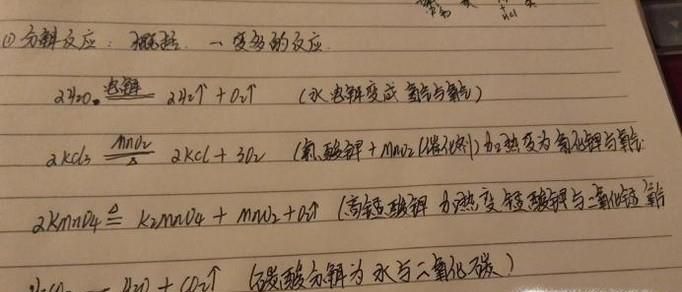 ① 分解反应：概括：一变多的反应
2H2O 电解 2H2↑ + O2↑ （水电解变成氢气与氧气）
2KCl3 MnO2 △ 2KCl + 3O2 （氯酸钾 + MnO2 (催化剂) 加热变为氯化钾与氧气
2KMnO4 △ K2MnO4 + MnO2 + O2↑ （高锰酸钾 加热变 锰酸钾与二氧化锰 氧气
H2O + CO2↑ （碳酸分解为水与二氧化碳）